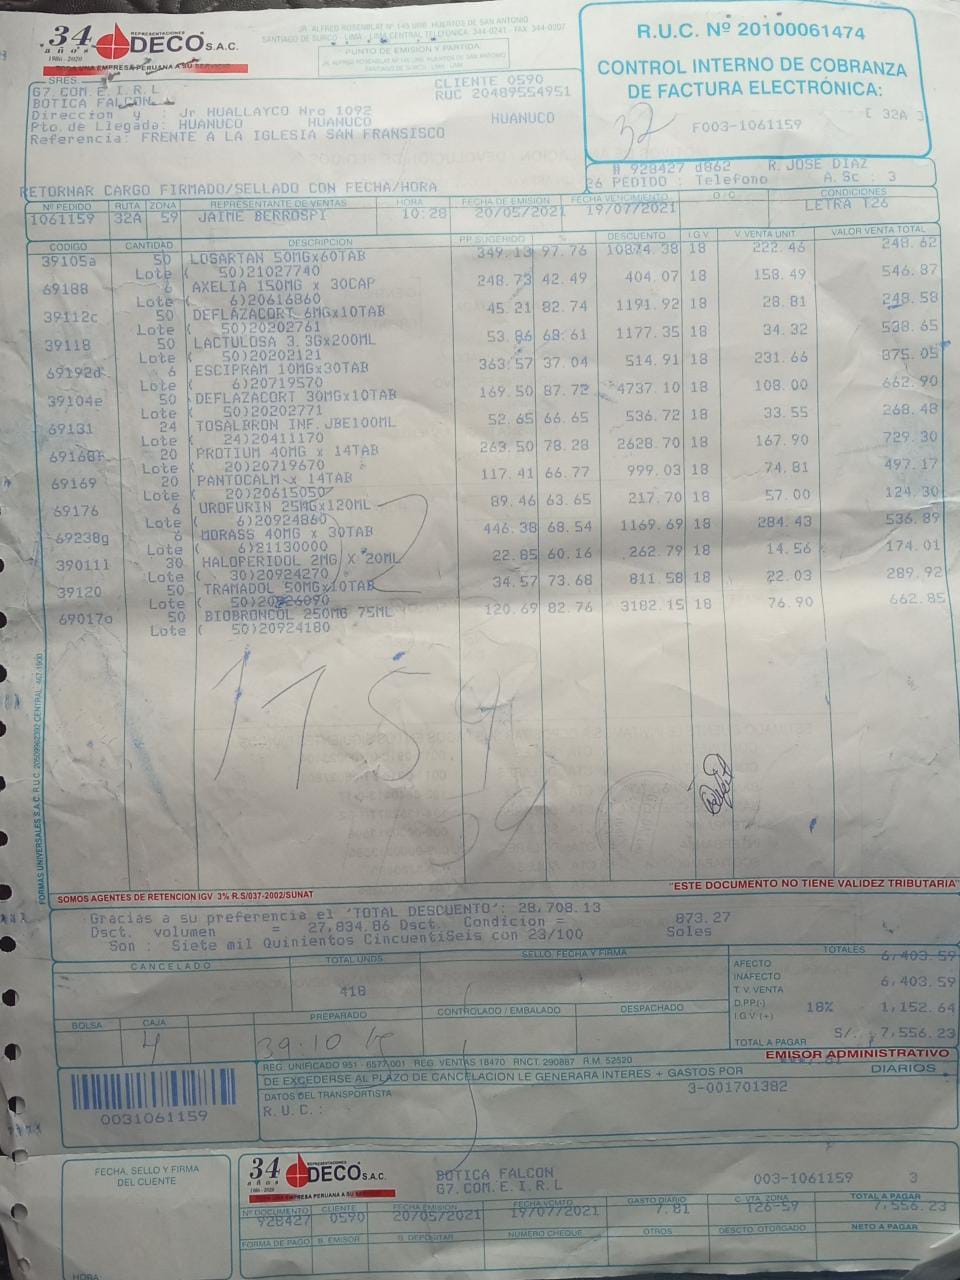 34 años 1986-2020
REPRESENTACIONES DECO S.A.C.
TODA UNA EMPRESA PERUANA A SU SERVICIO
JR. ALFREDO ROSENBLAT Nº 145 URB. HUERTOS DE SAN ANTONIO
SANTIAGO DE SURCO - LIMA - LIMA CENTRAL TELEFONICA: 344-0241 - FAX: 344-0207
PUNTO DE EMISIÓN Y PARTIDA
JR. ALFREDO ROSENBLAT Nº 145 URB. HUERTOS DE SAN ANTONIO
SANTIAGO DE SURCO - LIMA - LIMA
R.U.C. Nº 20100061474
CONTROL INTERNO DE COBRANZA
DE FACTURA ELECTRÓNICA:
[ 32A ]
32
F003-1061159
SRES.
G7.COM.E.I.R.L
CLIENTE 0590
BOTICA FALCON
RUC 20489554951
Direccion y : Jr HUALLAYCO Nro 1092
Pto.de Llegada: HUANUCO HUANUCO HUANUCO
Referencia: FRENTE A LA IGLESIA SAN FRANSISCO
N 928427 d862 R.JOSE DIAZ
26 PEDIDO : Telefono A.Sc : 3
RETORNAR CARGO FIRMADO/SELLADO CON FECHA/HORA
Nº PEDIDO RUTA ZONA REPRESENTANTE DE VENTAS HORA FECHA DE EMISION FECHA VENCIMIENTO O / C CONDICIONES
1061159 32A 59 JAIME BERROSPI 10:28 20/05/2021 19/07/2021 LETRA T26
CODIGO CANTIDAD DESCRIPCION PP. SUGERIDO % DESCUENTO I.G.V. V. VENTA UNIT VALOR VENTA TOTAL
39105a 50 LOSARTAN 50MGx60TAB 349.13 97.76 10874.38 18 222.46 248.62
Lote ( 50)21027740
69188 6 AXELIA 150MG x 30CAP 248.73 42.49 404.07 18 158.49 546.87
Lote ( 6)20616860
39112c 50 DEFLAZACORT 6MGx10TAB 45.21 82.74 1191.92 18 28.81 248.58
Lote ( 50)20202761
39118 50 LACTULOSA 3.3Gx200ML 53.86 68.61 1177.35 18 34.32 538.65
Lote ( 50)20202121
69192d 6 ESCIPRAM 10MGx30TAB 363.57 37.04 514.91 18 231.66 875.05
Lote ( 6)20719570
39104e 50 DEFLAZACORT 30MGx10TAB 169.50 87.72 4737.10 18 108.00 662.90
Lote ( 50)20202771
69131 24 TOSALBRON INF.JBE100ML 52.65 66.65 536.72 18 33.55 268.48
Lote ( 24)20411170
69168f 20 PROTIUM 40MG x 14TAB 263.50 78.28 2628.70 18 167.90 729.30
Lote ( 20)20719670
69169 20 PANTOCALM x 14TAB 117.41 66.77 999.03 18 74.81 497.17
Lote ( 20)20615050
69176 6 UROFURIN 25MGx120ML 89.46 63.65 217.70 18 57.00 124.30
Lote ( 6)20924860
69238g 6 MORASS 40MG x 30TAB 446.38 68.54 1169.69 18 284.43 536.89
Lote ( 6)21130000
390111 30 HALOFERIDOL 2MG x 20ML 22.85 60.16 262.79 18 14.56 174.01
Lote ( 30)20924270
39120 50 TRAMADOL 50MGx10TAB 34.57 73.68 811.58 18 22.03 289.92
Lote ( 50)20826090
69017a 50 BIOBRONCOL 250MG 75ML 120.69 82.76 3182.15 18 76.90 662.85
Lote ( 50)20924180
FORMAS UNIVERSALES S.A.C. R.U.C. 20509962392 CENTRAL: 467-1900
SOMOS AGENTES DE RETENCION IGV 3% R.S/037-2002/SUNAT
"ESTE DOCUMENTO NO TIENE VALIDEZ TRIBUTARIA"
Gracias a su preferencia el 'TOTAL DESCUENTO': 28,708.13
Dsct. volumen = 27,834.86 Dsct. Condicion = 873.27
Son : Siete mil Quinientos CincuentiSeis con 23/100 Soles
CANCELADO TOTAL UNDS. SELLO, FECHA Y FIRMA TOTALES
418
AFECTO 6,403.59
INAFECTO
T. V. VENTA 6,403.59
D.P.P.(-)
I.G.V.(+) 18% 1,152.64
TOTAL A PAGAR S/. 7,556.23
BOLSA CAJA PREPARADO CONTROLADO / EMBALADO DESPACHADO
4 39.10
EMISOR ADMINISTRATIVO
REG. UNIFICADO 951 - 6577,001 REG. VENTAS 18470 RNCT. 290887 R.M. 52520
DE EXCEDERSE AL PLAZO DE CANCELACION LE GENERARA INTERES + GASTOS POR DIARIOS
DATOS DEL TRANSPORTISTA 3-001701382
R.U.C.:
0031061159
FECHA, SELLO Y FIRMA
DEL CLIENTE
HORA:
34 años 1986-2020
REPRESENTACIONES DECO S.A.C.
TODA UNA EMPRESA PERUANA A SU SERVICIO
BOTICA FALCON
G7.COM.E.I.R.L
003-1061159 3
Nº DOCUMENTO CLIENTE FECHA EMISION FECHA VCMTO GASTO DIARIO C. VTA. ZONA TOTAL A PAGAR
928427 0590 20/05/2021 19/07/2021 7.81 T26-59 7,556.23
FORMA DE PAGO B. EMISOR B. DEPOSITAR NUMERO CHEQUE OTROS DESCTO. OTORGADO NETO A PAGAR